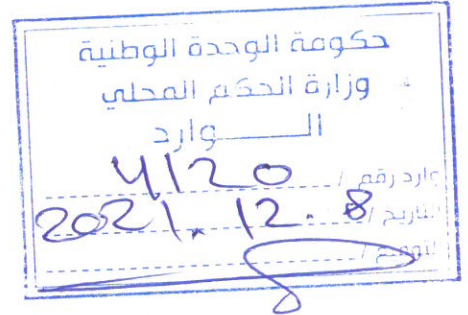 حكومة الوحدة الوطنية
وزارة الحكم المحلي
الــــوارد
وارد رقم / 4120
التاريخ / 2021. 12. 8
التوقيع /